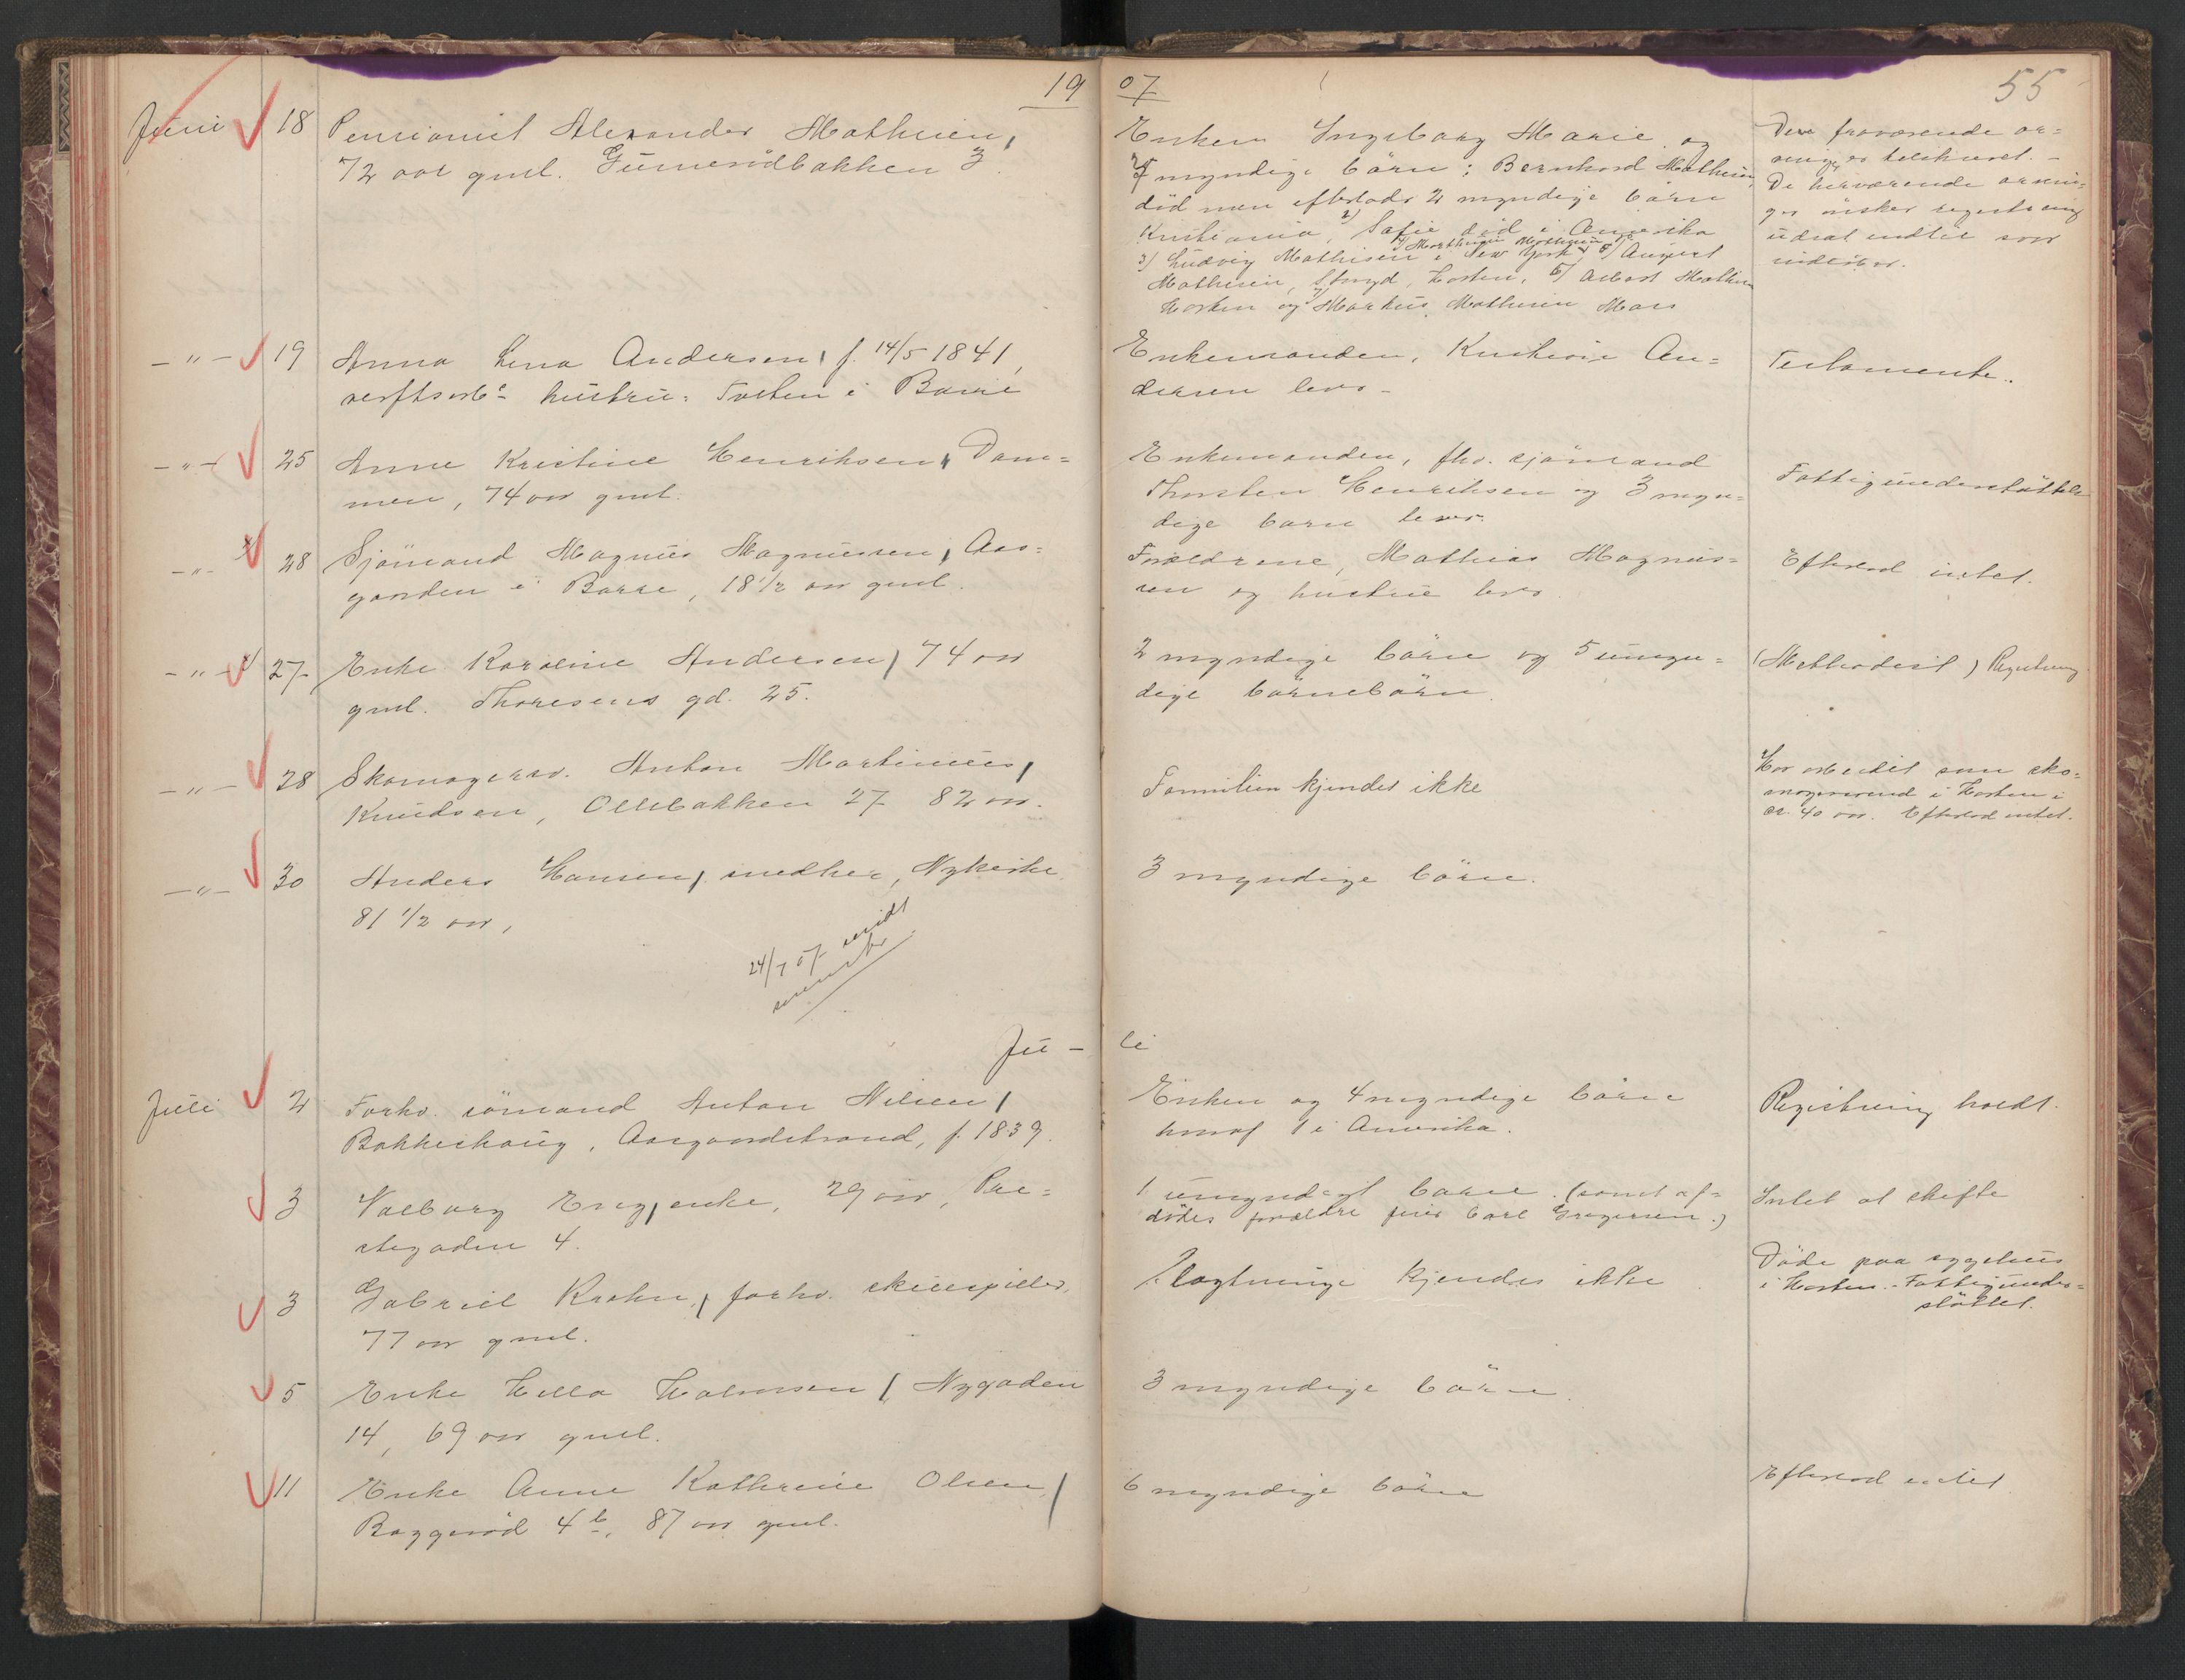 19 07
55
Juni 18 Pensionist Alexander Mathisen,
72 aar gml. Gunnerödbakken 3.
Enken Ingeborg Marie og
7 myndige börn: Bernhard Mathisen,
död men efterlader 2 myndige börn
Kristiania, 2) Sofie död i Amerika
3) Ludvig Mathisen i New York 4) Marthinius Mathisen 5) August
Mathisen, Horten, 6) Albert Mathisen
Horten og 7) Markus Mathisen Moss
Den fraværende ar-
ving er tilskrevet. -
De herværende arvin-
ger önsker registrering
udsat indtil svar
indlöber.
-"- 19 Anna Lena Andersen, f. 14/5 1841,
verftsarb. hustru. Toften i Borre
Enkemanden, Kristian An-
dersen lever -
Testamente.
-"- 25 Anne Kristine Henriksen, Dam-
men, 74 aar gml.
Enkemanden, fhv. sjömand
Thorsten Henriksen og 3 myn-
dige barn lever.
Fattigunderstöttelse
-"- 28 Sjömand Magnus Magnussen, Aas-
gaarden i Borre, 18 1/2 aar gml.
Forældrene, Mathias Magnus-
sen og hustru lever.
Efterlod intet.
-"- 27 Enke Karoline Andersen, 74 aar
gml. Thoresens gd. 25.
2 myndige börn og 5 umyn-
dige börnebörn.
(Methodist) Registrering
-"- 28 Skomagersv. Anton Martinius
Knudsen, Ollebakken 27 82 aar.
Familien kjendes ikke
Har arbeidet som sko-
magersvend i Horten i
ca. 40 aar. Efterlod intet.
-"- 30 Anders Hansen, snedker, Nykirke
81 1/2 aar,
3 myndige börn.
24/7 07
Ju - li
Juli 2 Forhv. sömand Anton Nilsen,
Bakkehaug, Aasgaardstrand, f. 1839.
Enken og 4 myndige börn
hvoraf 1 i Amerika.
Registrering holdt.
3 Valborg Eng, enke, 29 aar, Pre-
stegaden 4.
1 umyndigt barn. (samt af-
dödes forældre Carl Gregersen.)
Intet at skifte
3 Gabriel Krohn, forhv. skuespiller,
77 aar gml.
Slægtninge kjendes ikke
Döde paa sygehus
i Horten. - Fattigunder-
stöttet.
5 Enke Hella Halvorsen, Nygaden
14, 69 aar gml.
3 myndige börn.
11 Enke Anne Kathrine Olsen,
Baggeröd 4 b, 87 aar gml.
6 myndige börn
Efterlod intet